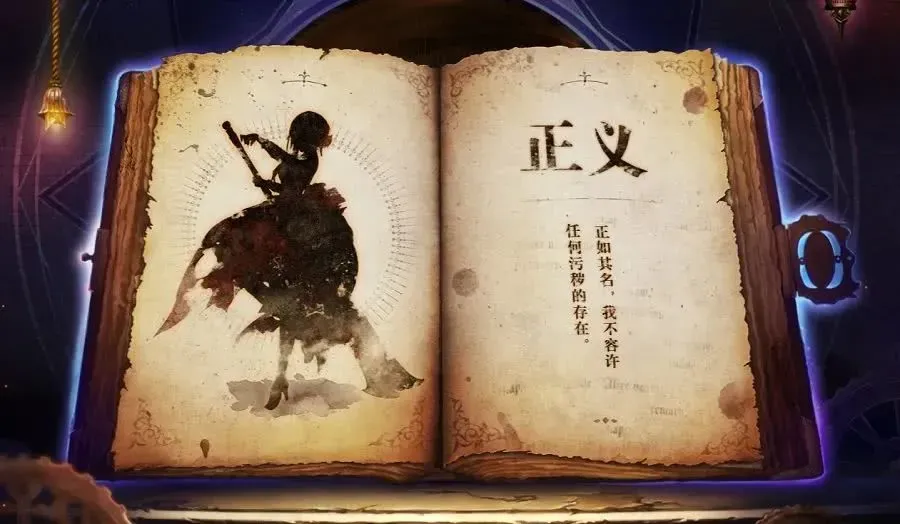 正义
正如其名，我不容许
任何污秽的存在。
0